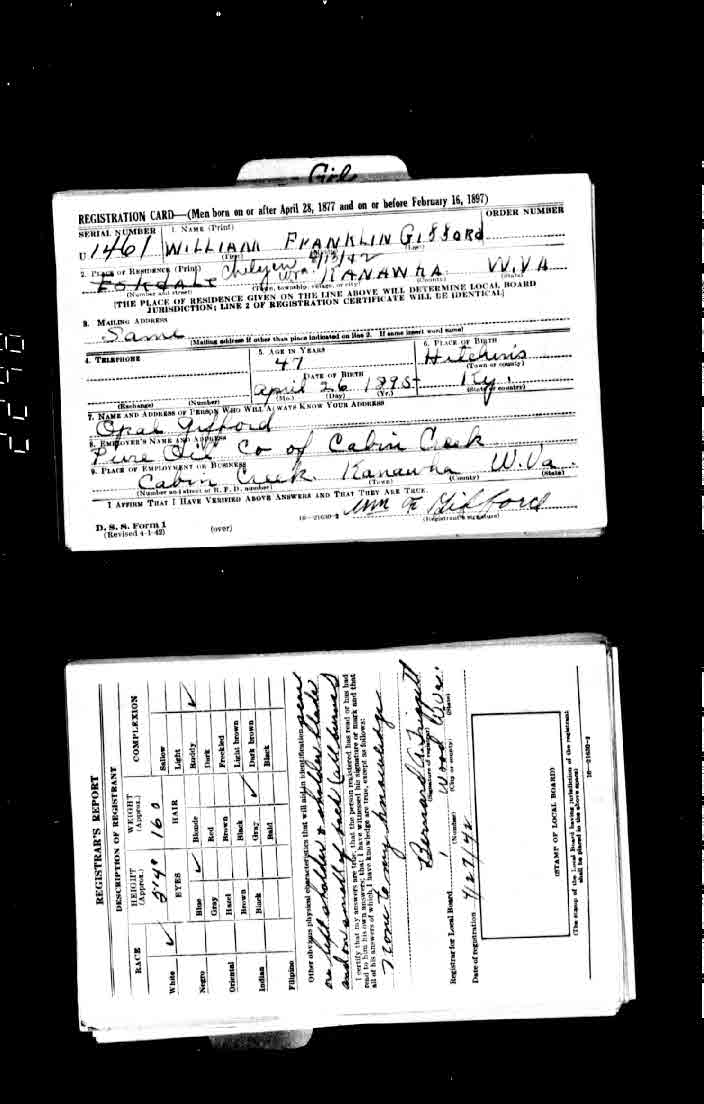 REGISTRATION CARD—(Men born on or after April 28, 1877 and on or before February 16, 1897)
SERIAL NUMBER 1. NAME (Print) ORDER NUMBER
U 1461 WILLIAM FRANKLIN GIFFORD
(First) (Last)
2. PLACE OF RESIDENCE (Print) Chelyan W.Va. 4/13/42
ESKDALE KANAWHA W.VA
(Number and street) (Town, township, village, or city) (County) (State)
[THE PLACE OF RESIDENCE GIVEN ON THE LINE ABOVE WILL DETERMINE LOCAL BOARD
JURISDICTION; LINE 2 OF REGISTRATION CERTIFICATE WILL BE IDENTICAL]
3. MAILING ADDRESS
Same
(Mailing address if other than place indicated on line 2. If same insert word same)
4. TELEPHONE 5. AGE IN YEARS 6. PLACE OF BIRTH
47 Hitchins
DATE OF BIRTH (Town or county)
April 26 1895 Ky.
(Exchange) (Number) (Mo.) (Day) (Yr.) (State or country)
7. NAME AND ADDRESS OF PERSON WHO WILL ALWAYS KNOW YOUR ADDRESS
Opal Gifford
8. EMPLOYER'S NAME AND ADDRESS
Pure Oil Co of Cabin Creek
9. PLACE OF EMPLOYMENT OR BUSINESS
Cabin Creek Kanawha W.Va.
(Number and street or R. F. D. number) (Town) (County) (State)
I AFFIRM THAT I HAVE VERIFIED ABOVE ANSWERS AND THAT THEY ARE TRUE.
Wm F Gifford
D. S. S. Form 1 16—21630-2 (Registrant's signature)
(Revised 4-1-42) (over)
REGISTRAR'S REPORT
DESCRIPTION OF REGISTRANT
RACE HEIGHT (Approx.) WEIGHT (Approx.) COMPLEXION
5'4" 160
White ✓ EYES HAIR Sallow
Light
Negro Blue ✓ Blonde Ruddy ✓
Gray Red Dark
Oriental Hazel Brown Freckled
Brown Black Light brown
Indian Black Gray ✓ Dark brown
Bald Black
Filipino
Other obvious physical characteristics that will aid in identification
on left sholder & sholder blade
and on small of back (all burns)
I certify that my answers are true; that the person registered has read or has had
read to him his own answers; that I have witnessed his signature or mark and that
all of his answers of which I have knowledge are true, except as follows:
None to my knowledge
Bernard
(Signature of registrar)
Registrar for Local Board 1 Wood W.Va.
(Number) (City or county) (State)
Date of registration 4/27/42
(STAMP OF LOCAL BOARD)
(The stamp of the Local Board having jurisdiction of the registrant
shall be placed in the above space)
16—21630-2